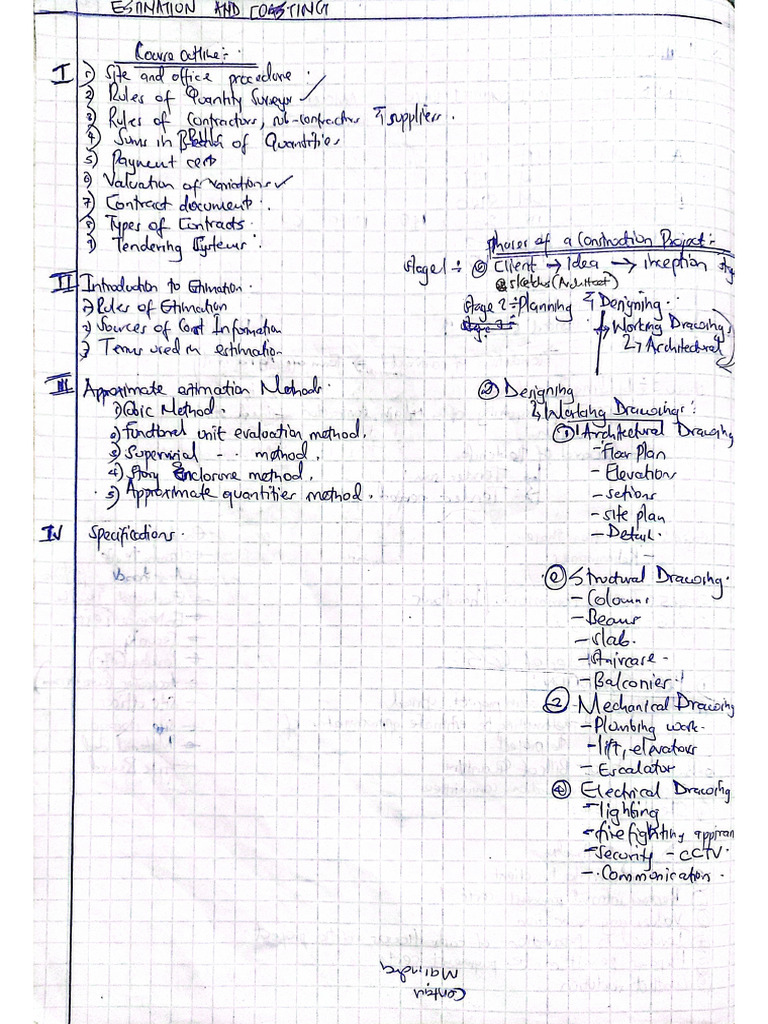 ESTINATION AND COASTING
Course outline:-
I 1) Site and office procedure
2) Rules of Quantity Surveyor ✓
3) Rules of Contractors, sub-contractors & suppliers.
4) Sums in Bills of Quantities
5) Payment cert
6) Valuation of variations ✓
7) Contract documents
8) Types of Contracts.
9) Tendering Systems.
II Introduction to Estimation.
1) Rules of Estimation
2) Sources of Cost Information
3) Terms used in estimation
III Approximate estimation Methods.
1) Cubic Method.
2) Functional unit evaluation method.
3) Superficial -- method.
4) Story Enclosure method.
5) Approximate quantities method.
IV Specifications.
Phases of a Construction Project:-
stage 1 :- Client → Idea → inception
sketches (Architect)
stage 2 :- Planning & Designing.
↳ Working Drawings
↳ Architectural
② Designing
↳ Working Drawings:
① Architectural Drawing
- Floor Plan
- Elevation
- setions
- site plan
- Detail.
② Structural Drawing.
- Coloums
- Beams
- slab.
- Staircase.
- Balconies.
Mechanical Drawing
- Plumbing work.
- lift, elevators
- Escalator
④ Electrical Drawing
- lighting
- fire fighting
- security - CCTV.
- Communication.